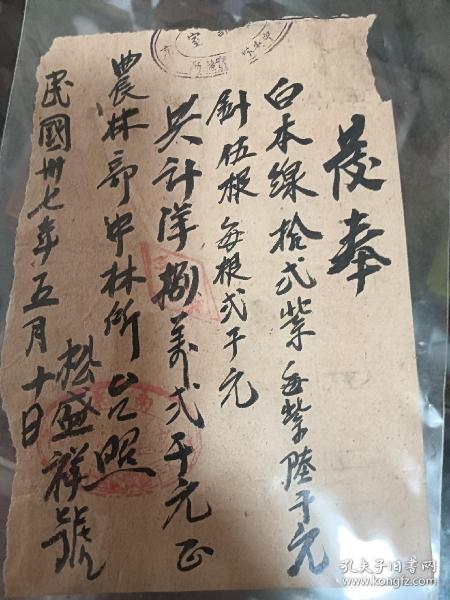 發奉
白本線拾弍紮每紮陸千元
針伍根每根弍千元
共計洋捌萬弍千元正
農林部中林所台照
民國卅七年五月十日
松盛祥號
孔夫子旧书网
www.kongfz.com